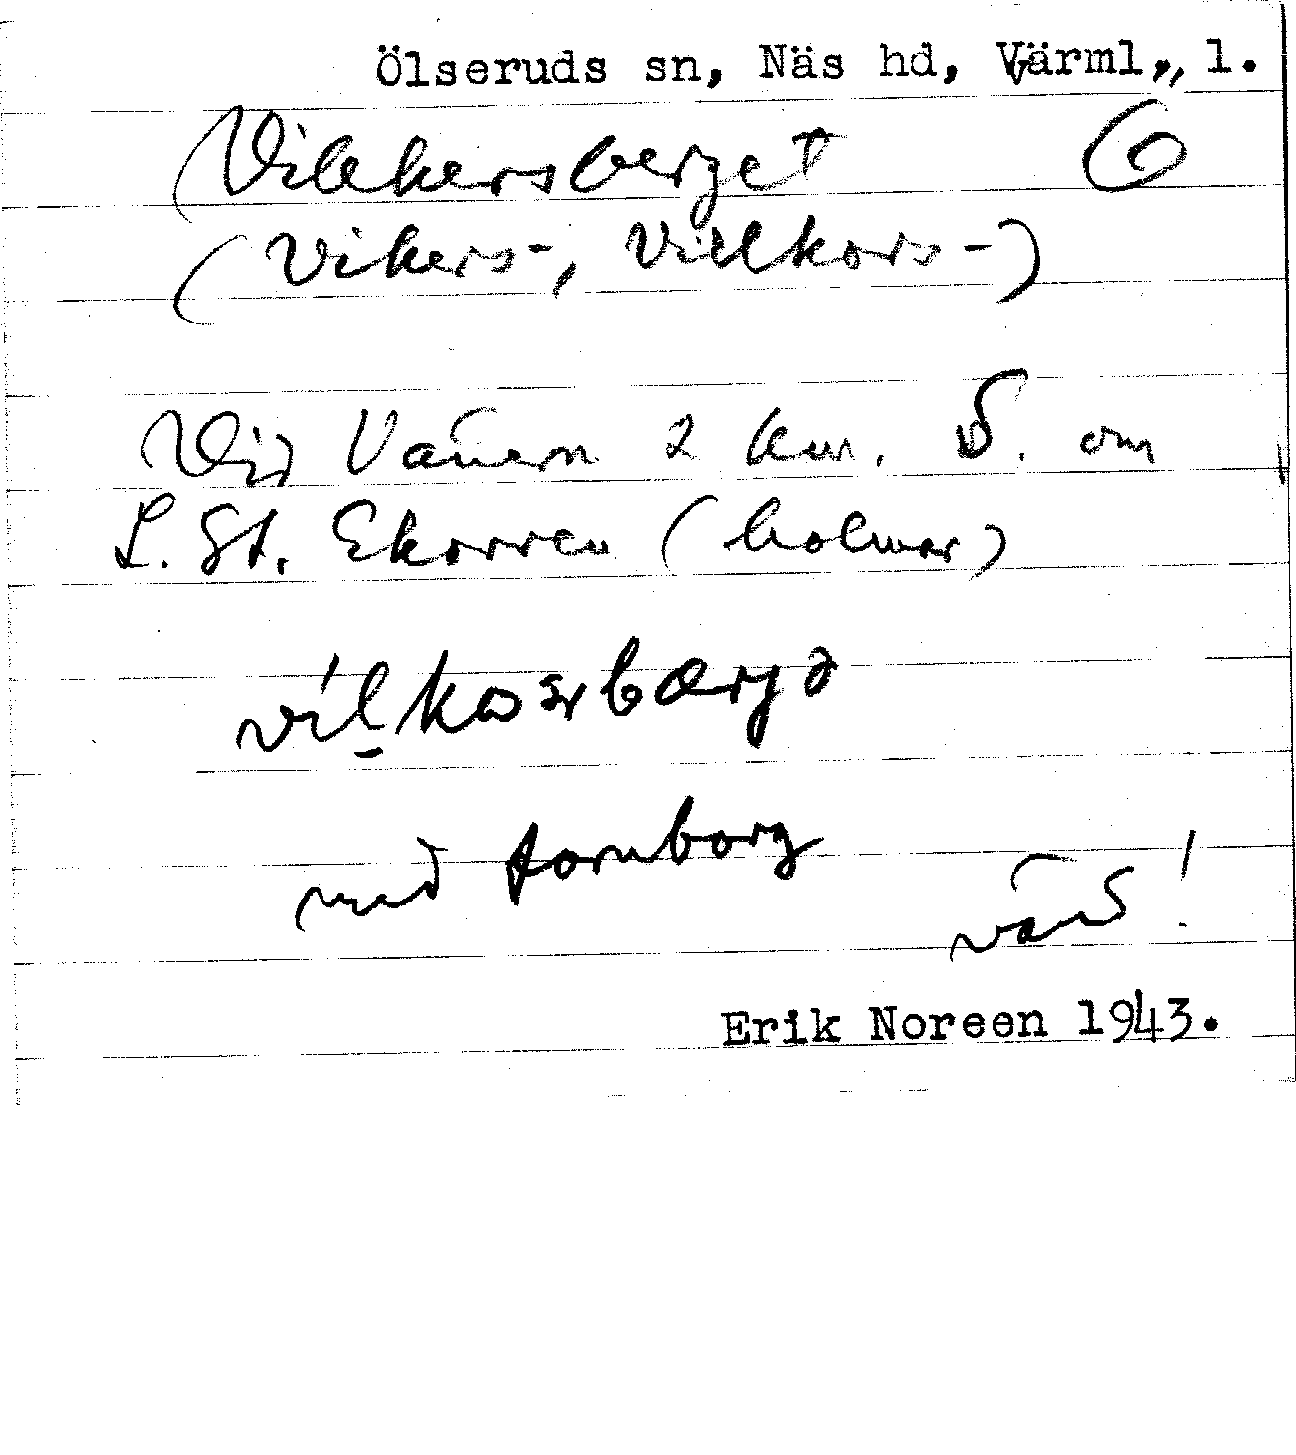 Ölseruds sn, Näs hd, Värml., l.
Vilkersberget
(Vikers-, Villkors-)
Vid Vänern 2 km. S. om
L. St. Ekorren (holmar)
med fornborg
Erik Noreen 1943.